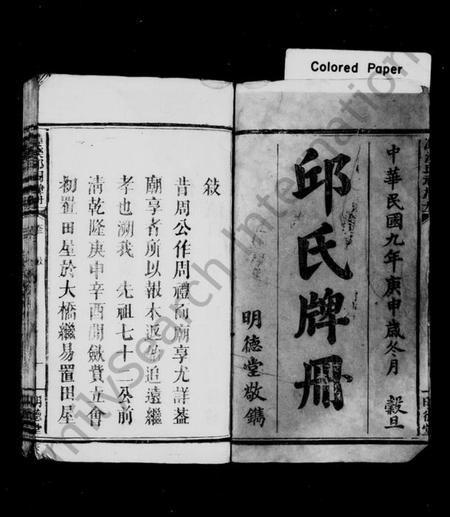 Colored Paper
中華民國九年庚申歲冬月 穀旦
邱氏牌冊
明德堂敬鐫
敍
昔周公作周禮而廟享尤詳蓋
廟享者所以報本返始追遠繼
孝也溯我 先祖七十二公前
清乾隆庚申辛酉開歛費立會
初置田屋於大橋繼易置田屋
明德堂
FamilySearch International